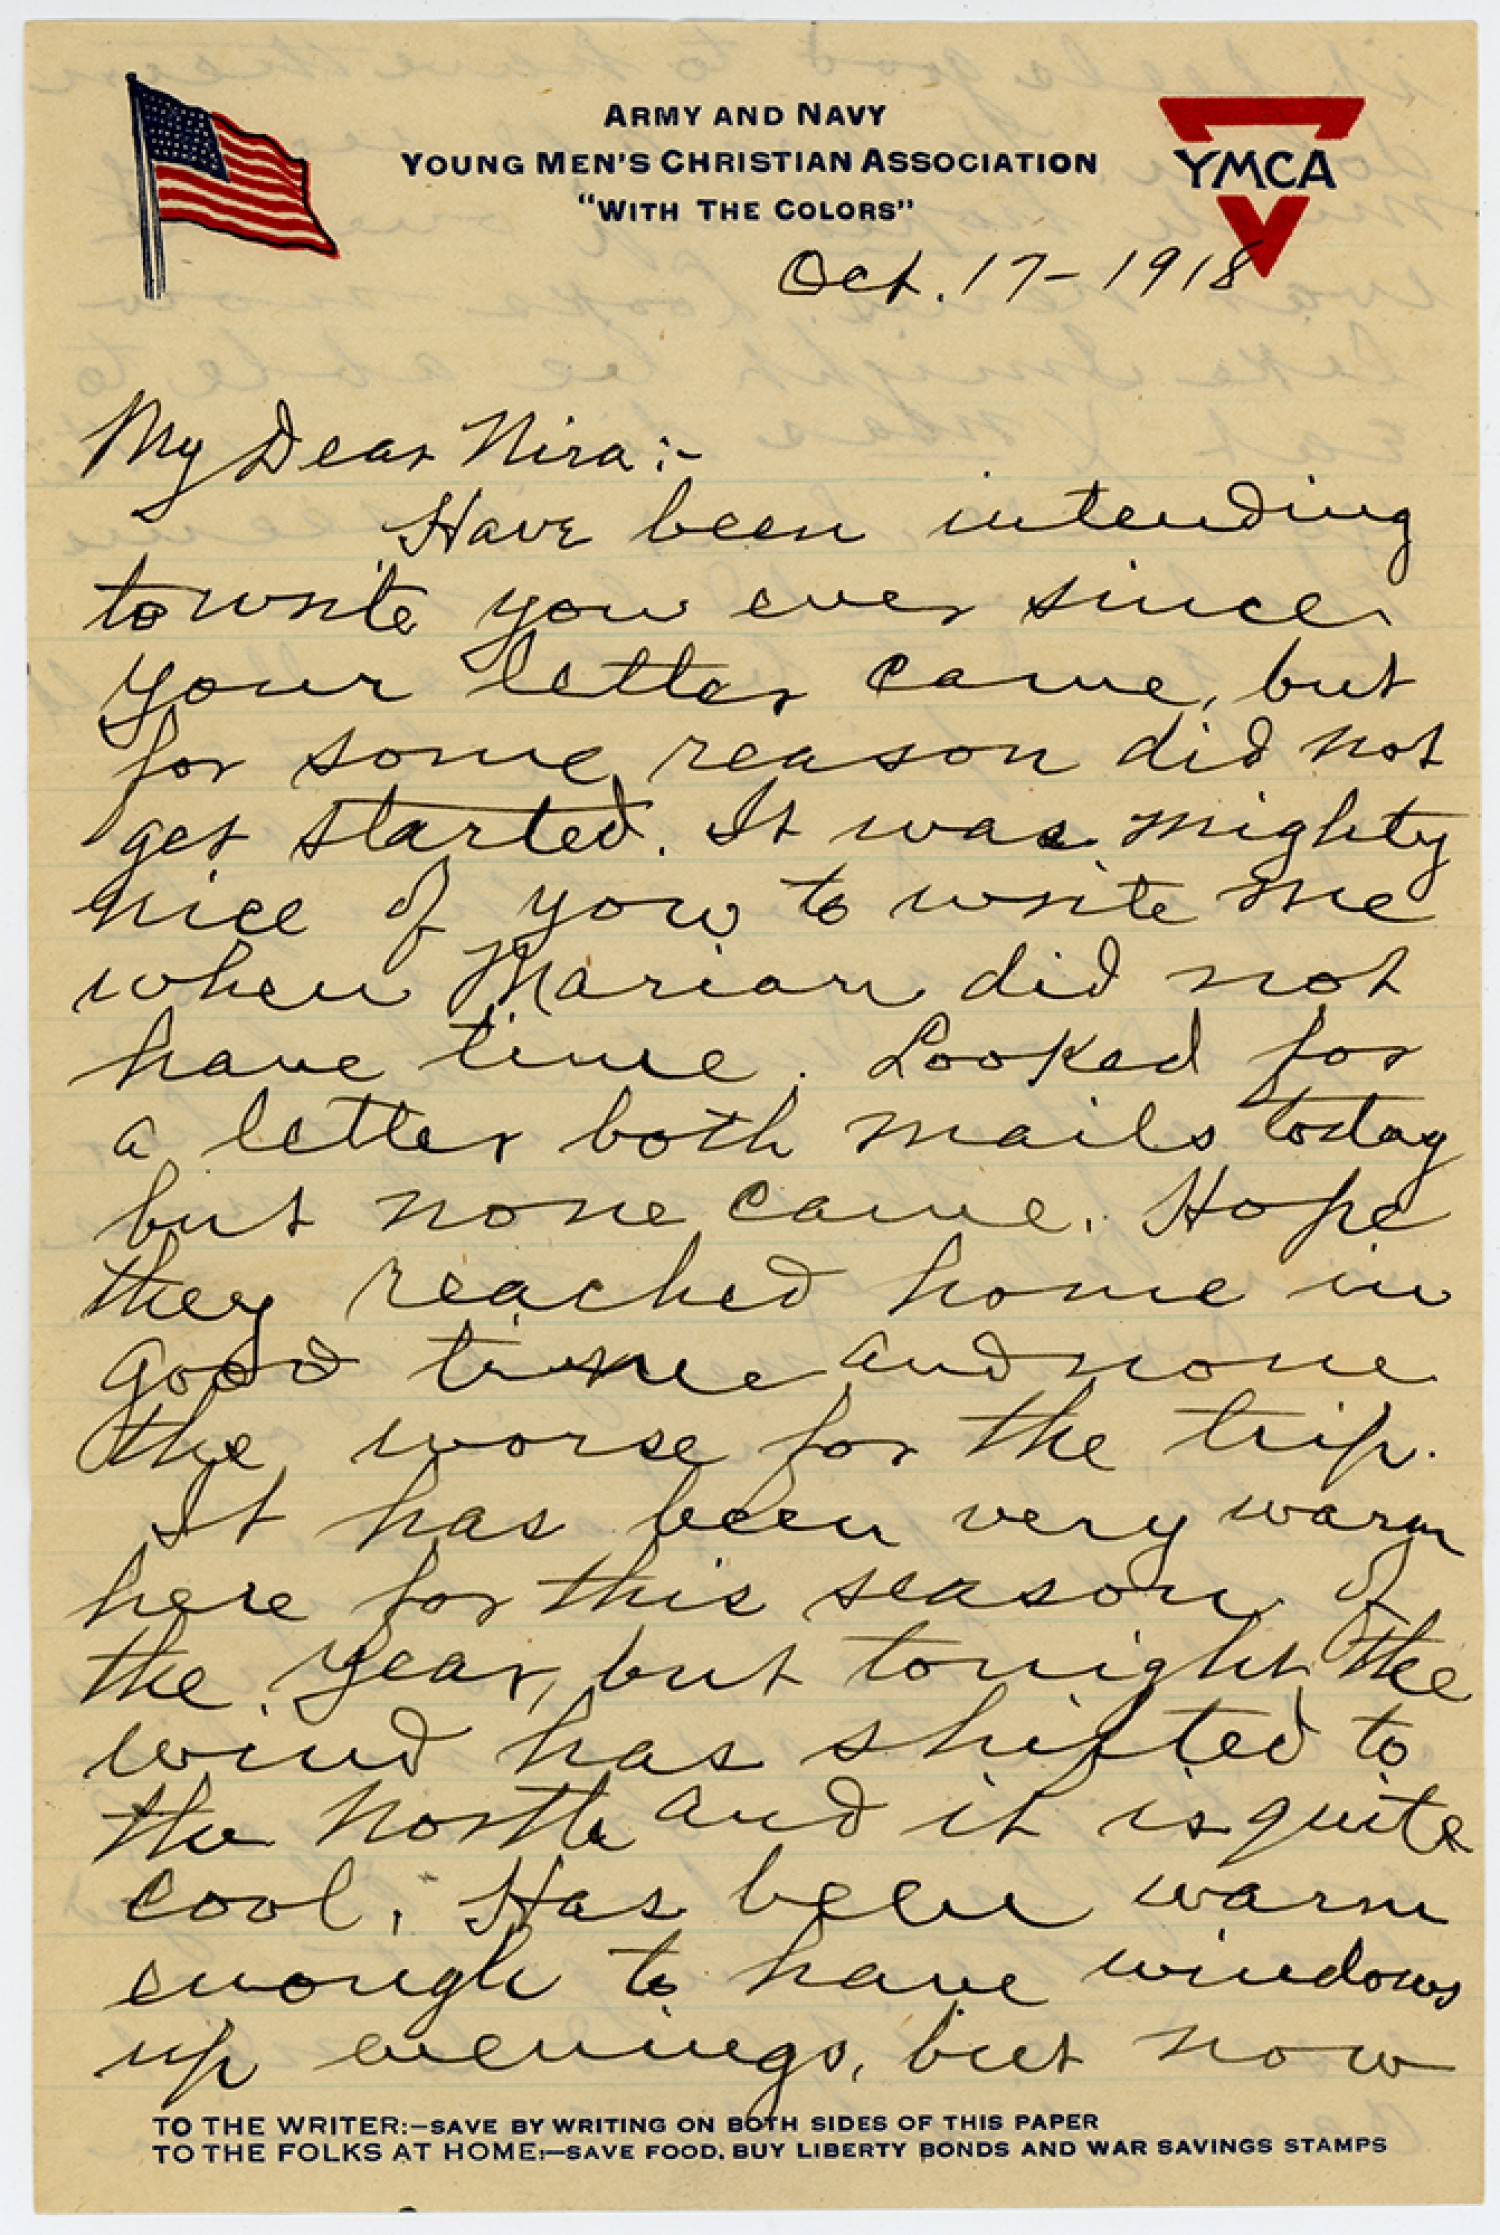 ARMY AND NAVY
YOUNG MEN'S CHRISTIAN ASSOCIATION
"WITH THE COLORS"
YMCA
Oct. 17-1918
My Dear Nira:-
Have been intending
to write you ever since
your letter came, but
for some reason did not
get started. It was mighty
nice of you to write me
when Marian did not
have time. Looked for
a letter both mails today
but none came. Hope
they reached home in
good time and none
the worse for the trip.
It has been very warm
here for this season of
the year, but tonight the
wind has shifted to
the North and it is quite
cool. Has been warm
enough to have windows
up evenings, but now
TO THE WRITER:-SAVE BY WRITING ON BOTH SIDES OF THIS PAPER
TO THE FOLKS AT HOME:-SAVE FOOD, BUY LIBERTY BONDS AND WAR SAVINGS STAMPS